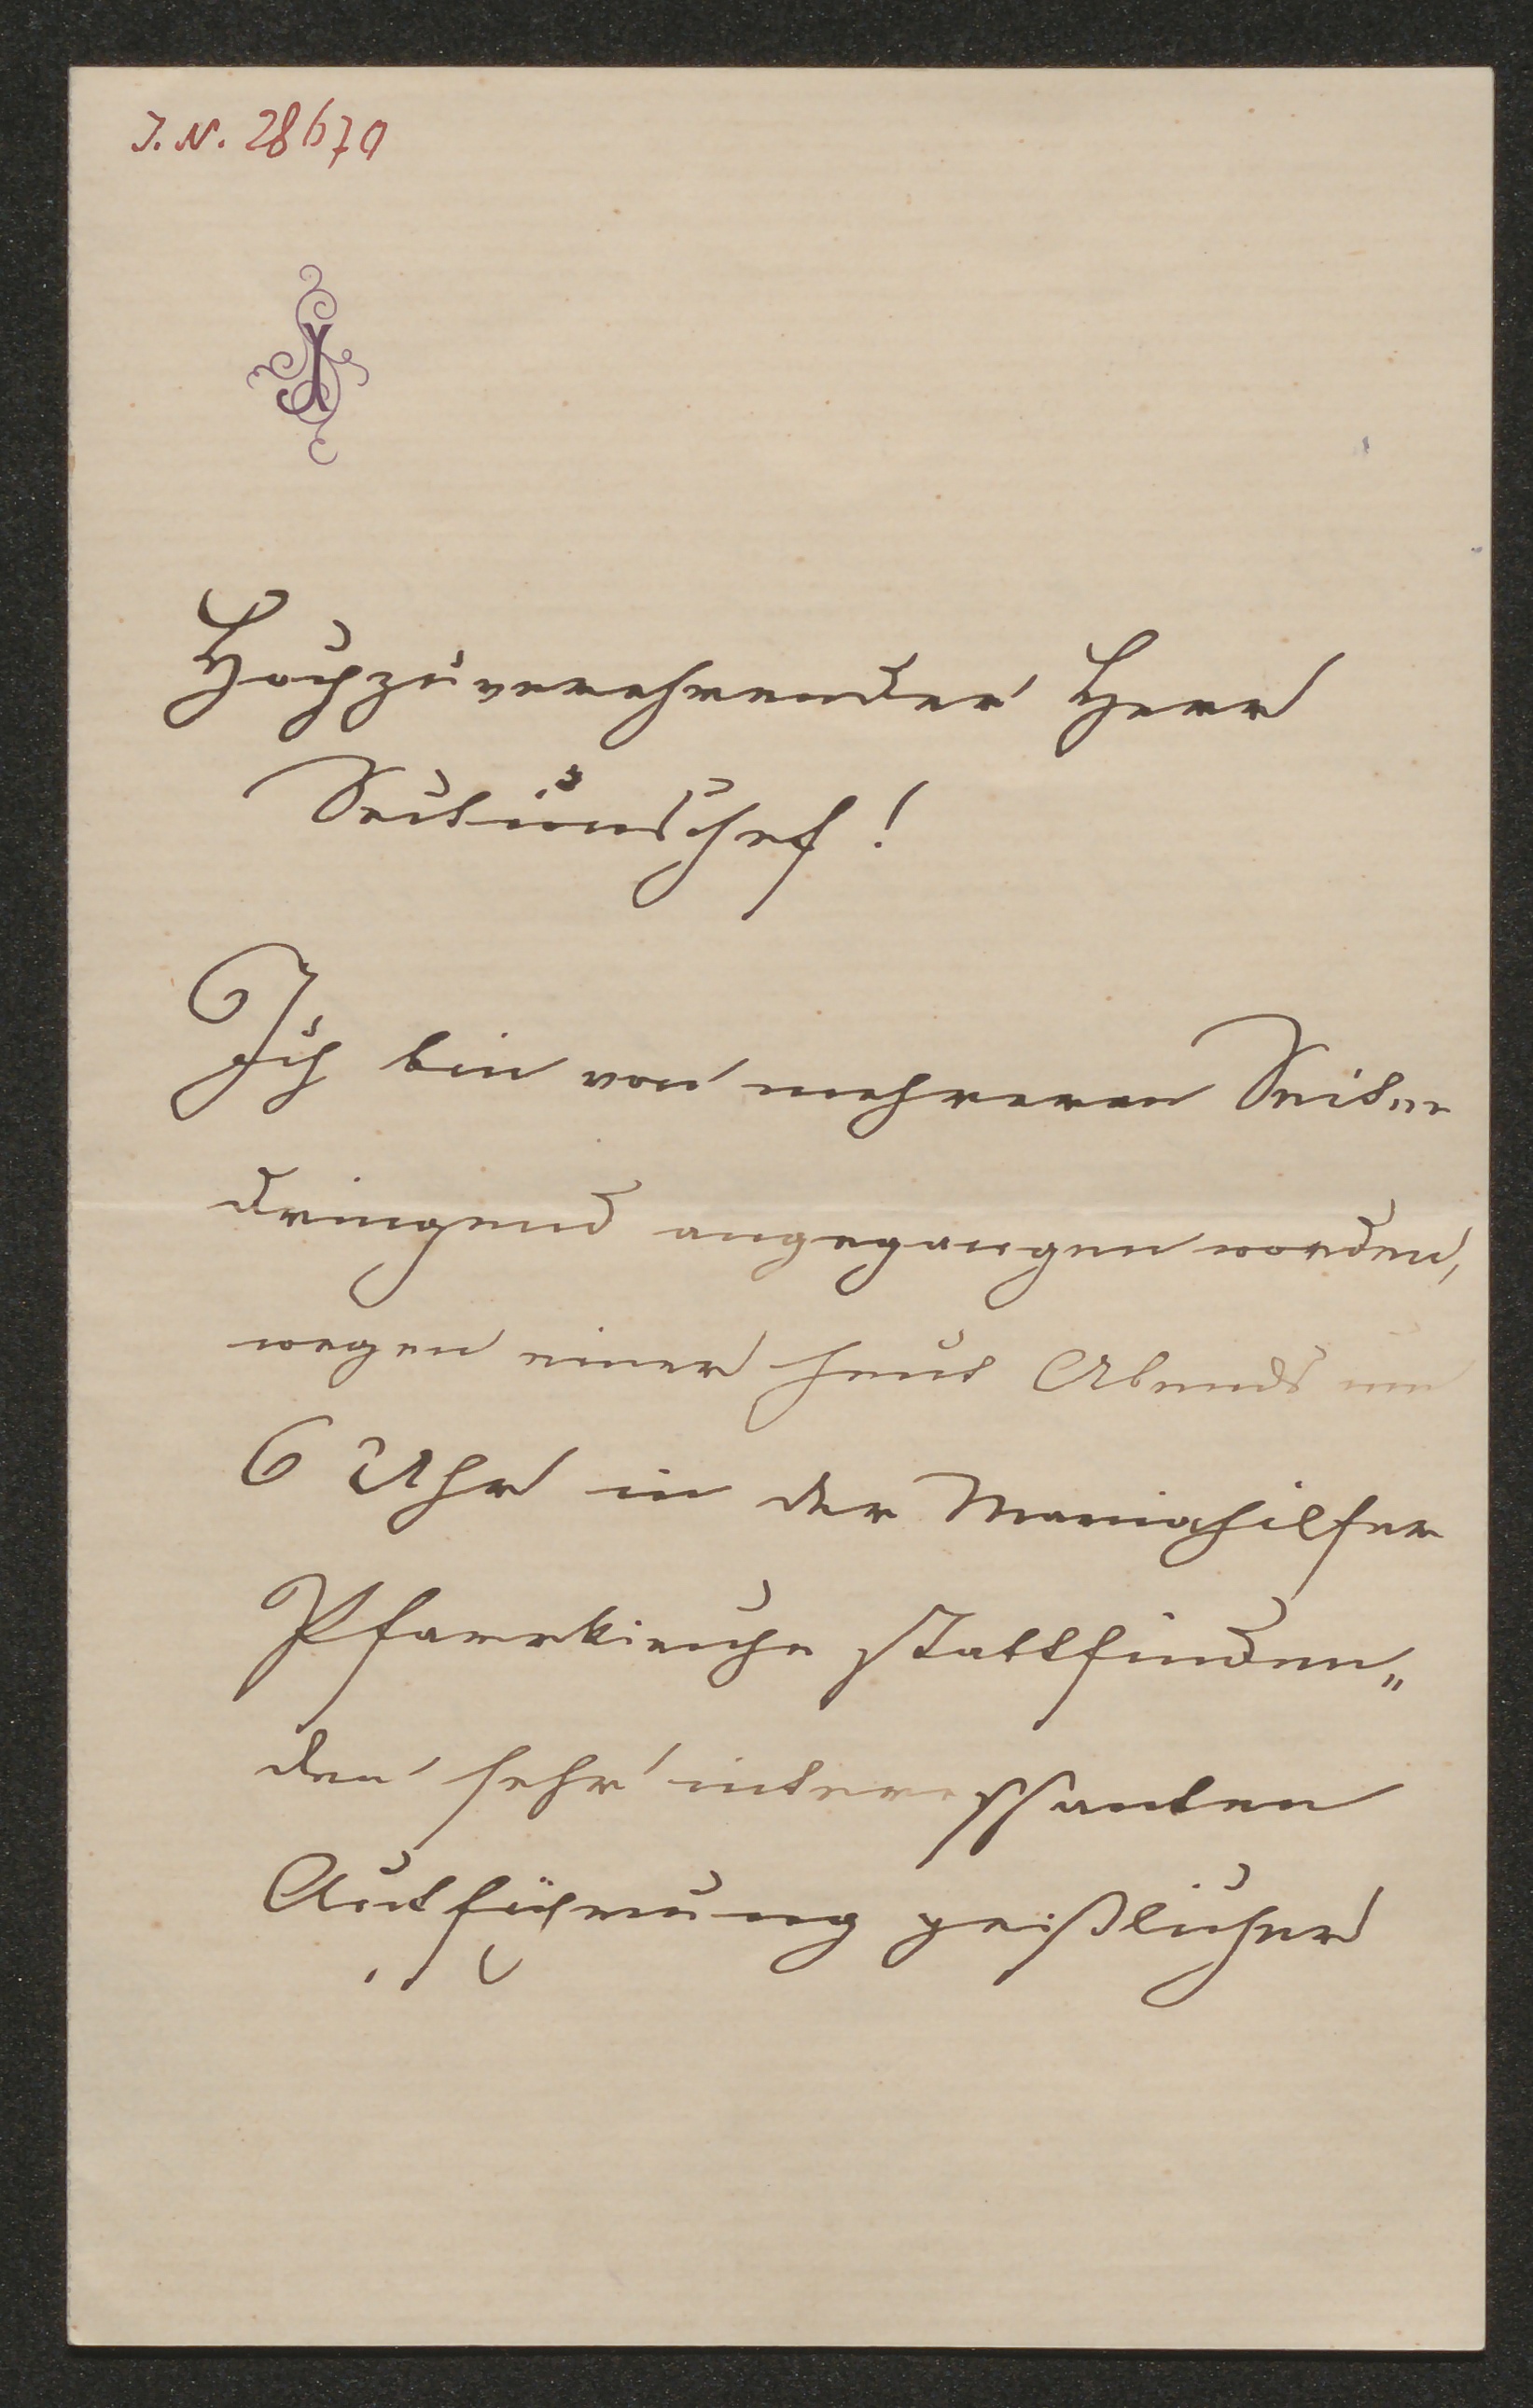 J. N. 28670
J
Hochzuverehrender Herr
Sectionschef!
Ich bin von mehreren Seiten
dringend angegangen worden,
wegen einer heut Abends um
6 Uhr in der Mariahilfer
Pfarrkirche stattfinden„
den sehr interessanten
Aufführung geistlicher